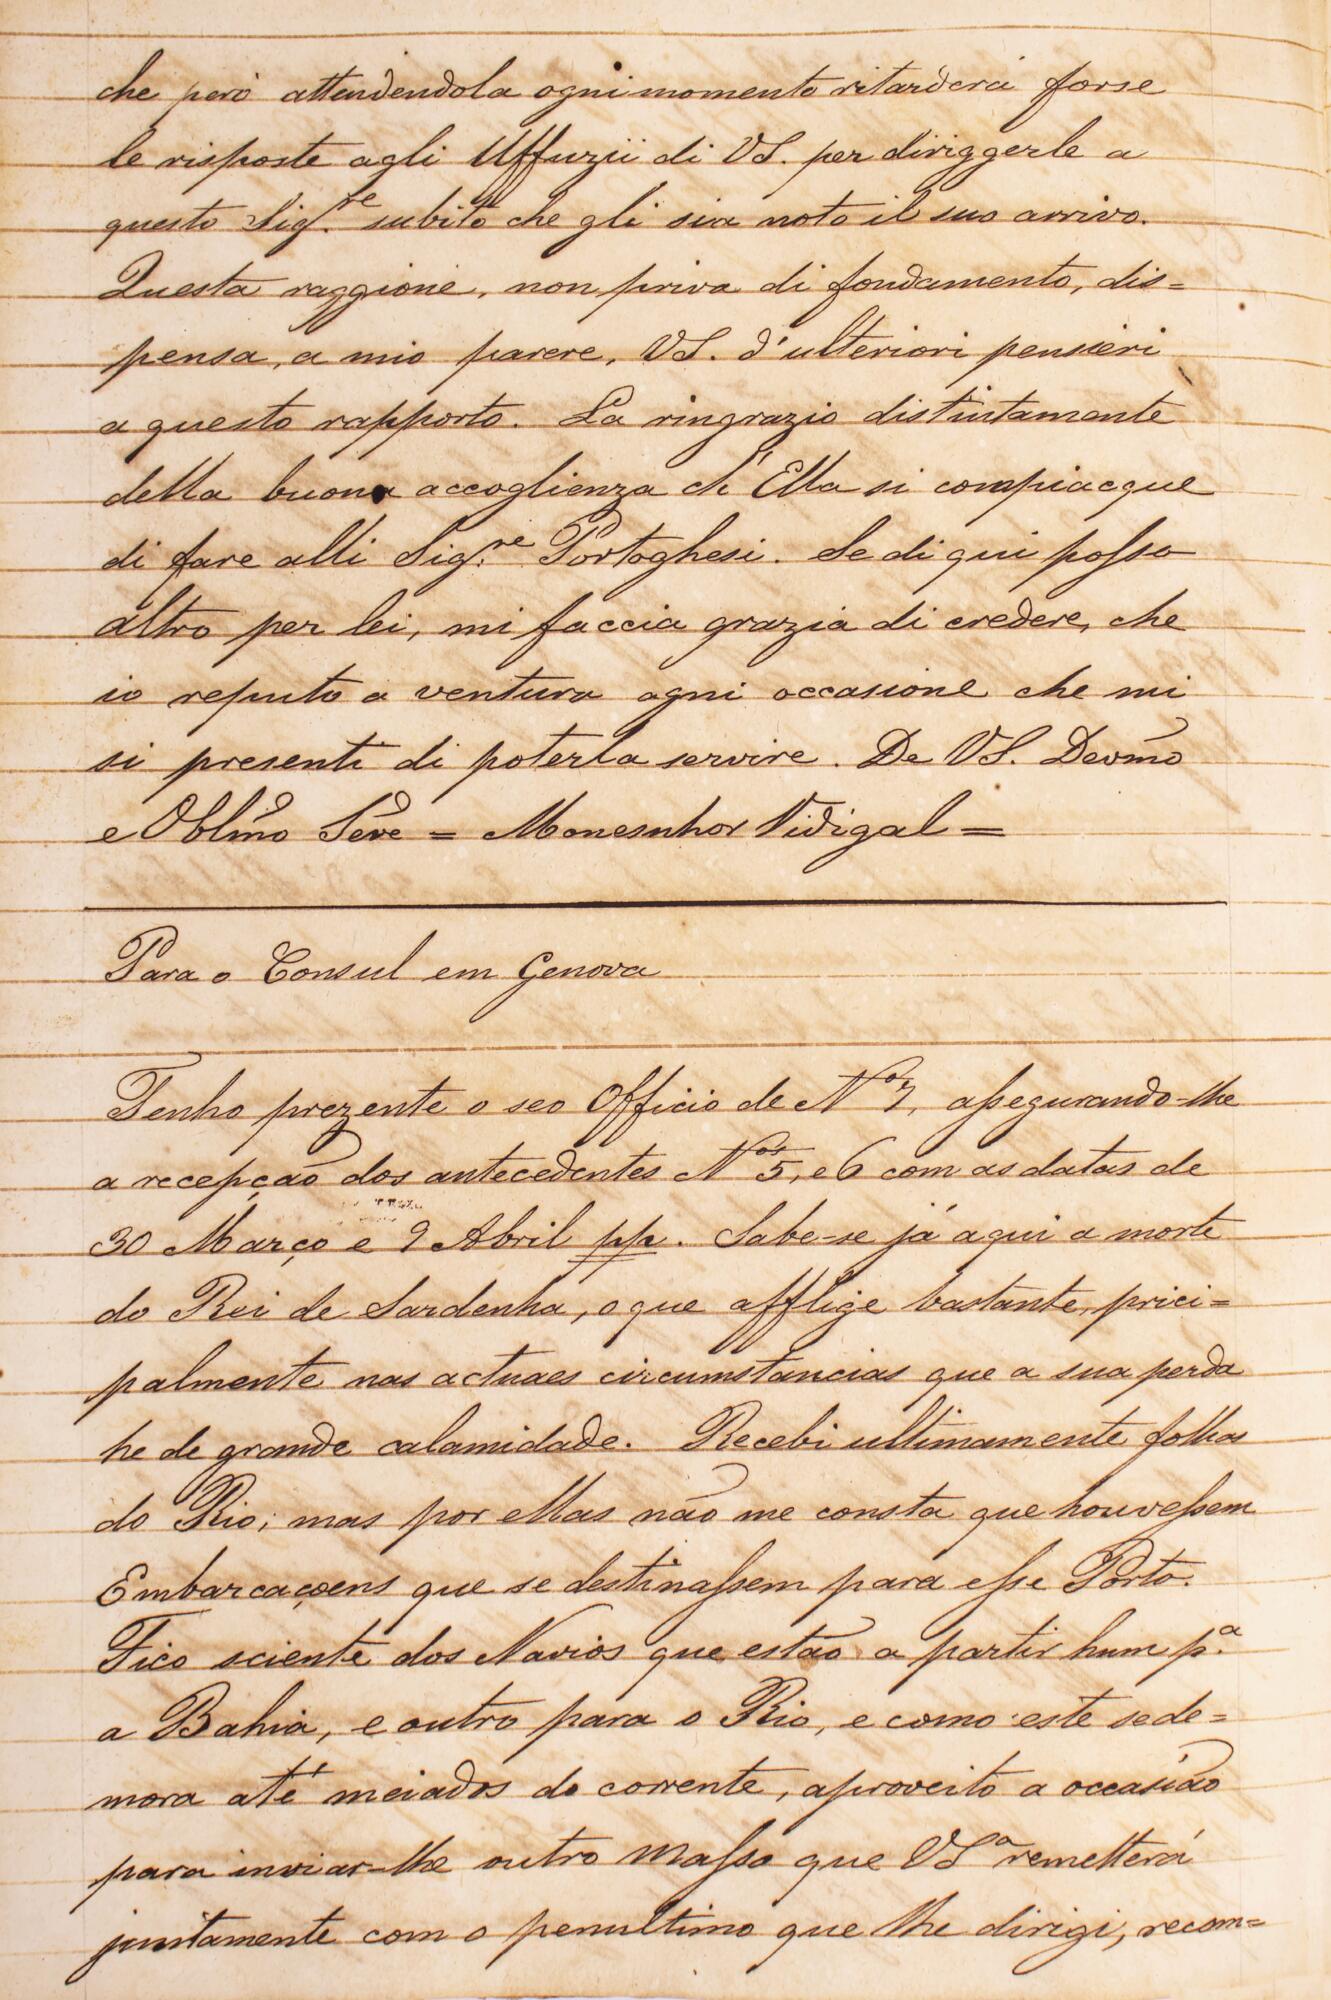 che però attendendola ogni momento ritarderá forse
le risposte agli Uffuzii di VS. per diriggerle a
questo Sig.re subito che gli sia noto il suo arrivo.
Questa raggione, non priva di fondamento, dis=
pensa, a mio parere, VS. d'ulteriori pensieri
a questo rapporto. La ringrazio distintamente
della buona accoglienza ch' Ella si compiacque
di fare alli Sig.re Portoghesi. Se di qui posso
altro per lei, mi faccia grazia di credere, che
io reputo a ventura ogni occasione che mi
si presenti di poterla servire. De VS. Devmo
e Oblmo Serve = Monesnhor Vidigal =
Para o Consul em Genova
Tenho prezente o seo Officio de Nº 7, assegurando-lhe
a recepção dos antecedentes Nos 5, e 6 com as datas de
30 Março e 9 Abril pp. Sabe-se já aqui a morte
do Rei de Sardenha, o que afflige bastante, prici=
palmente nas actuaes circumstancias que a sua perda
he de grande calamidade. Recebi ultimamente folhas
do Rio; mas por ellas não me consta que houvessem
Embarcaçoens que se destinassem para esse Porto.
Fico sciente dos Navios que estão a partir hum p.ª
a Bahia, e outro para o Rio, e como este sede=
mora até meiados do corrente, aproveito a occasião
para inviar-lhe outro masso que VSª remetterá
juntamente com o penultimo que lhe dirigi, recom=